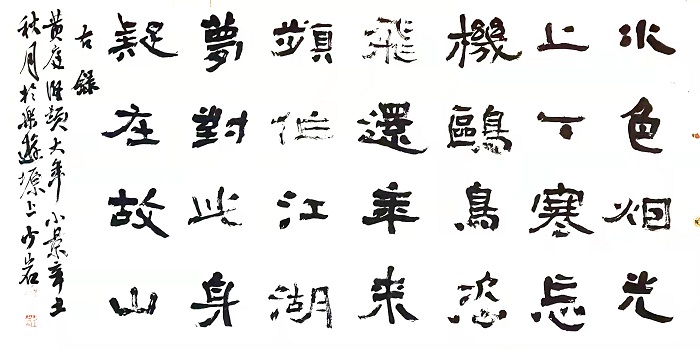 水色烟光
上下寒忘
機鷗鳥恣
飛還年来
頻作江湖
夢對此身
疑在故山
右錄
黄庭堅題大年小景辛丑
秋月於樂遊塬上少岩